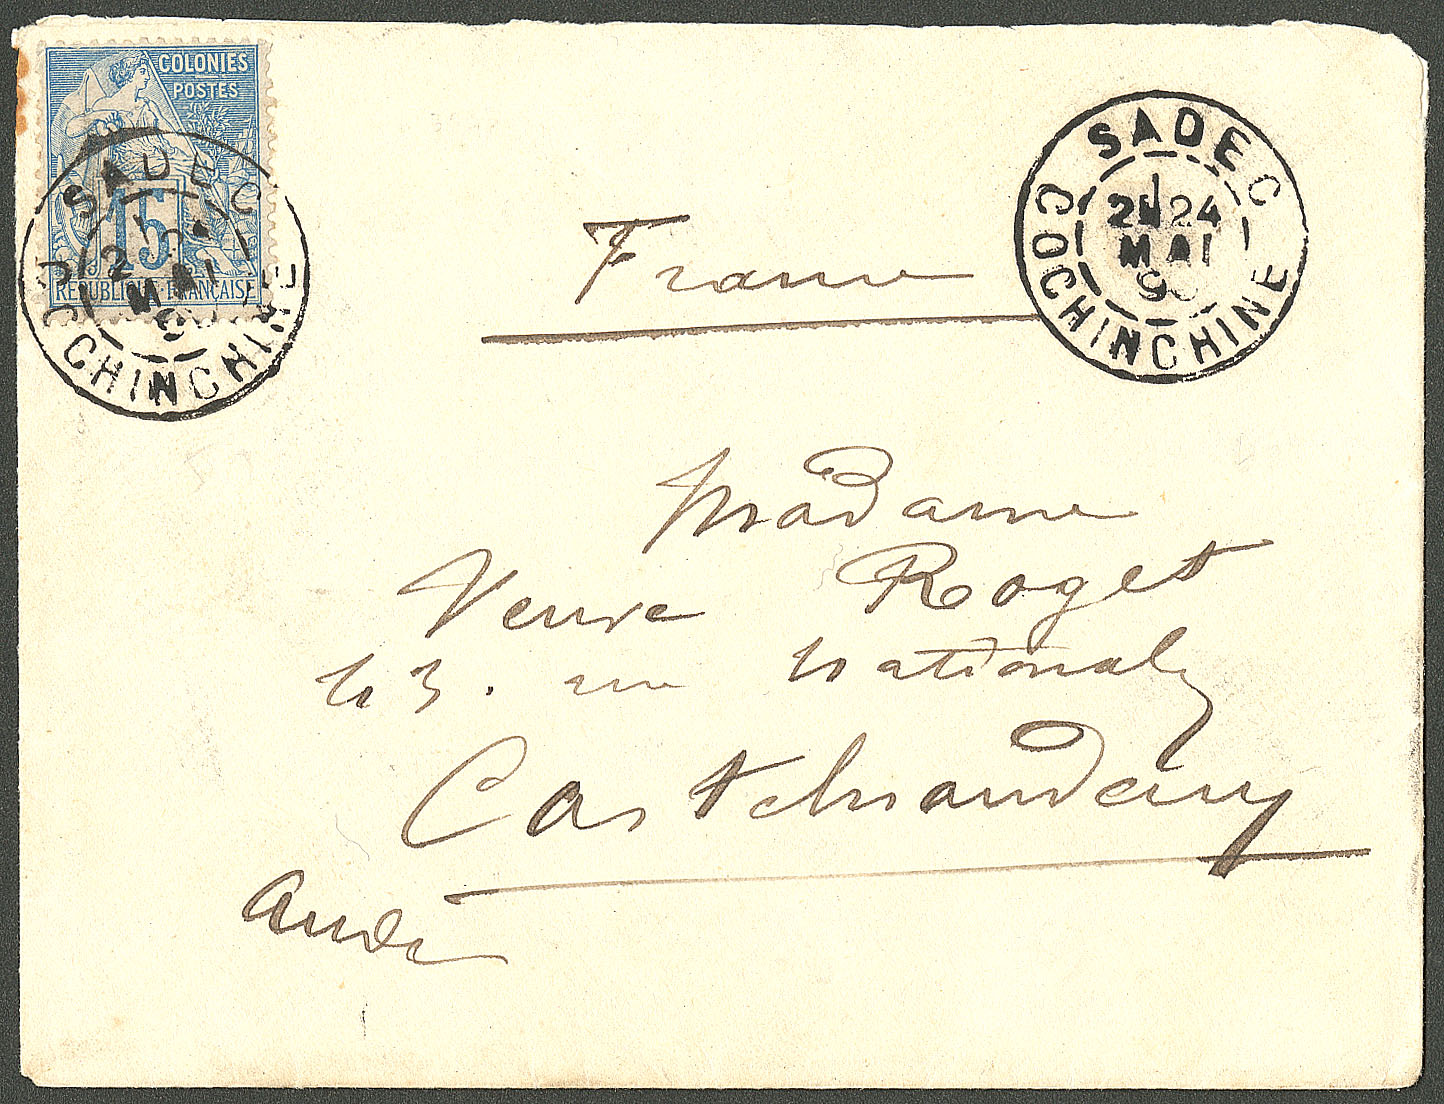 COLONIES
POSTES
15
RÉPUBLIQUE FRANÇAISE
SADEC
MAI
COCHINCHINE
SADEC
1
24
MAI
90
COCHINCHINE
France
Madame
Veuve Roget
43. rue Nationale
Castelnaudary
Aude